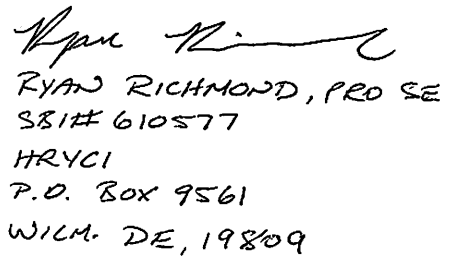 Ryan Richmond
RYAN RICHMOND, PRO SE
SBI# 610577
HRYCI
P.O. BOX 9561
WILM. DE, 19809